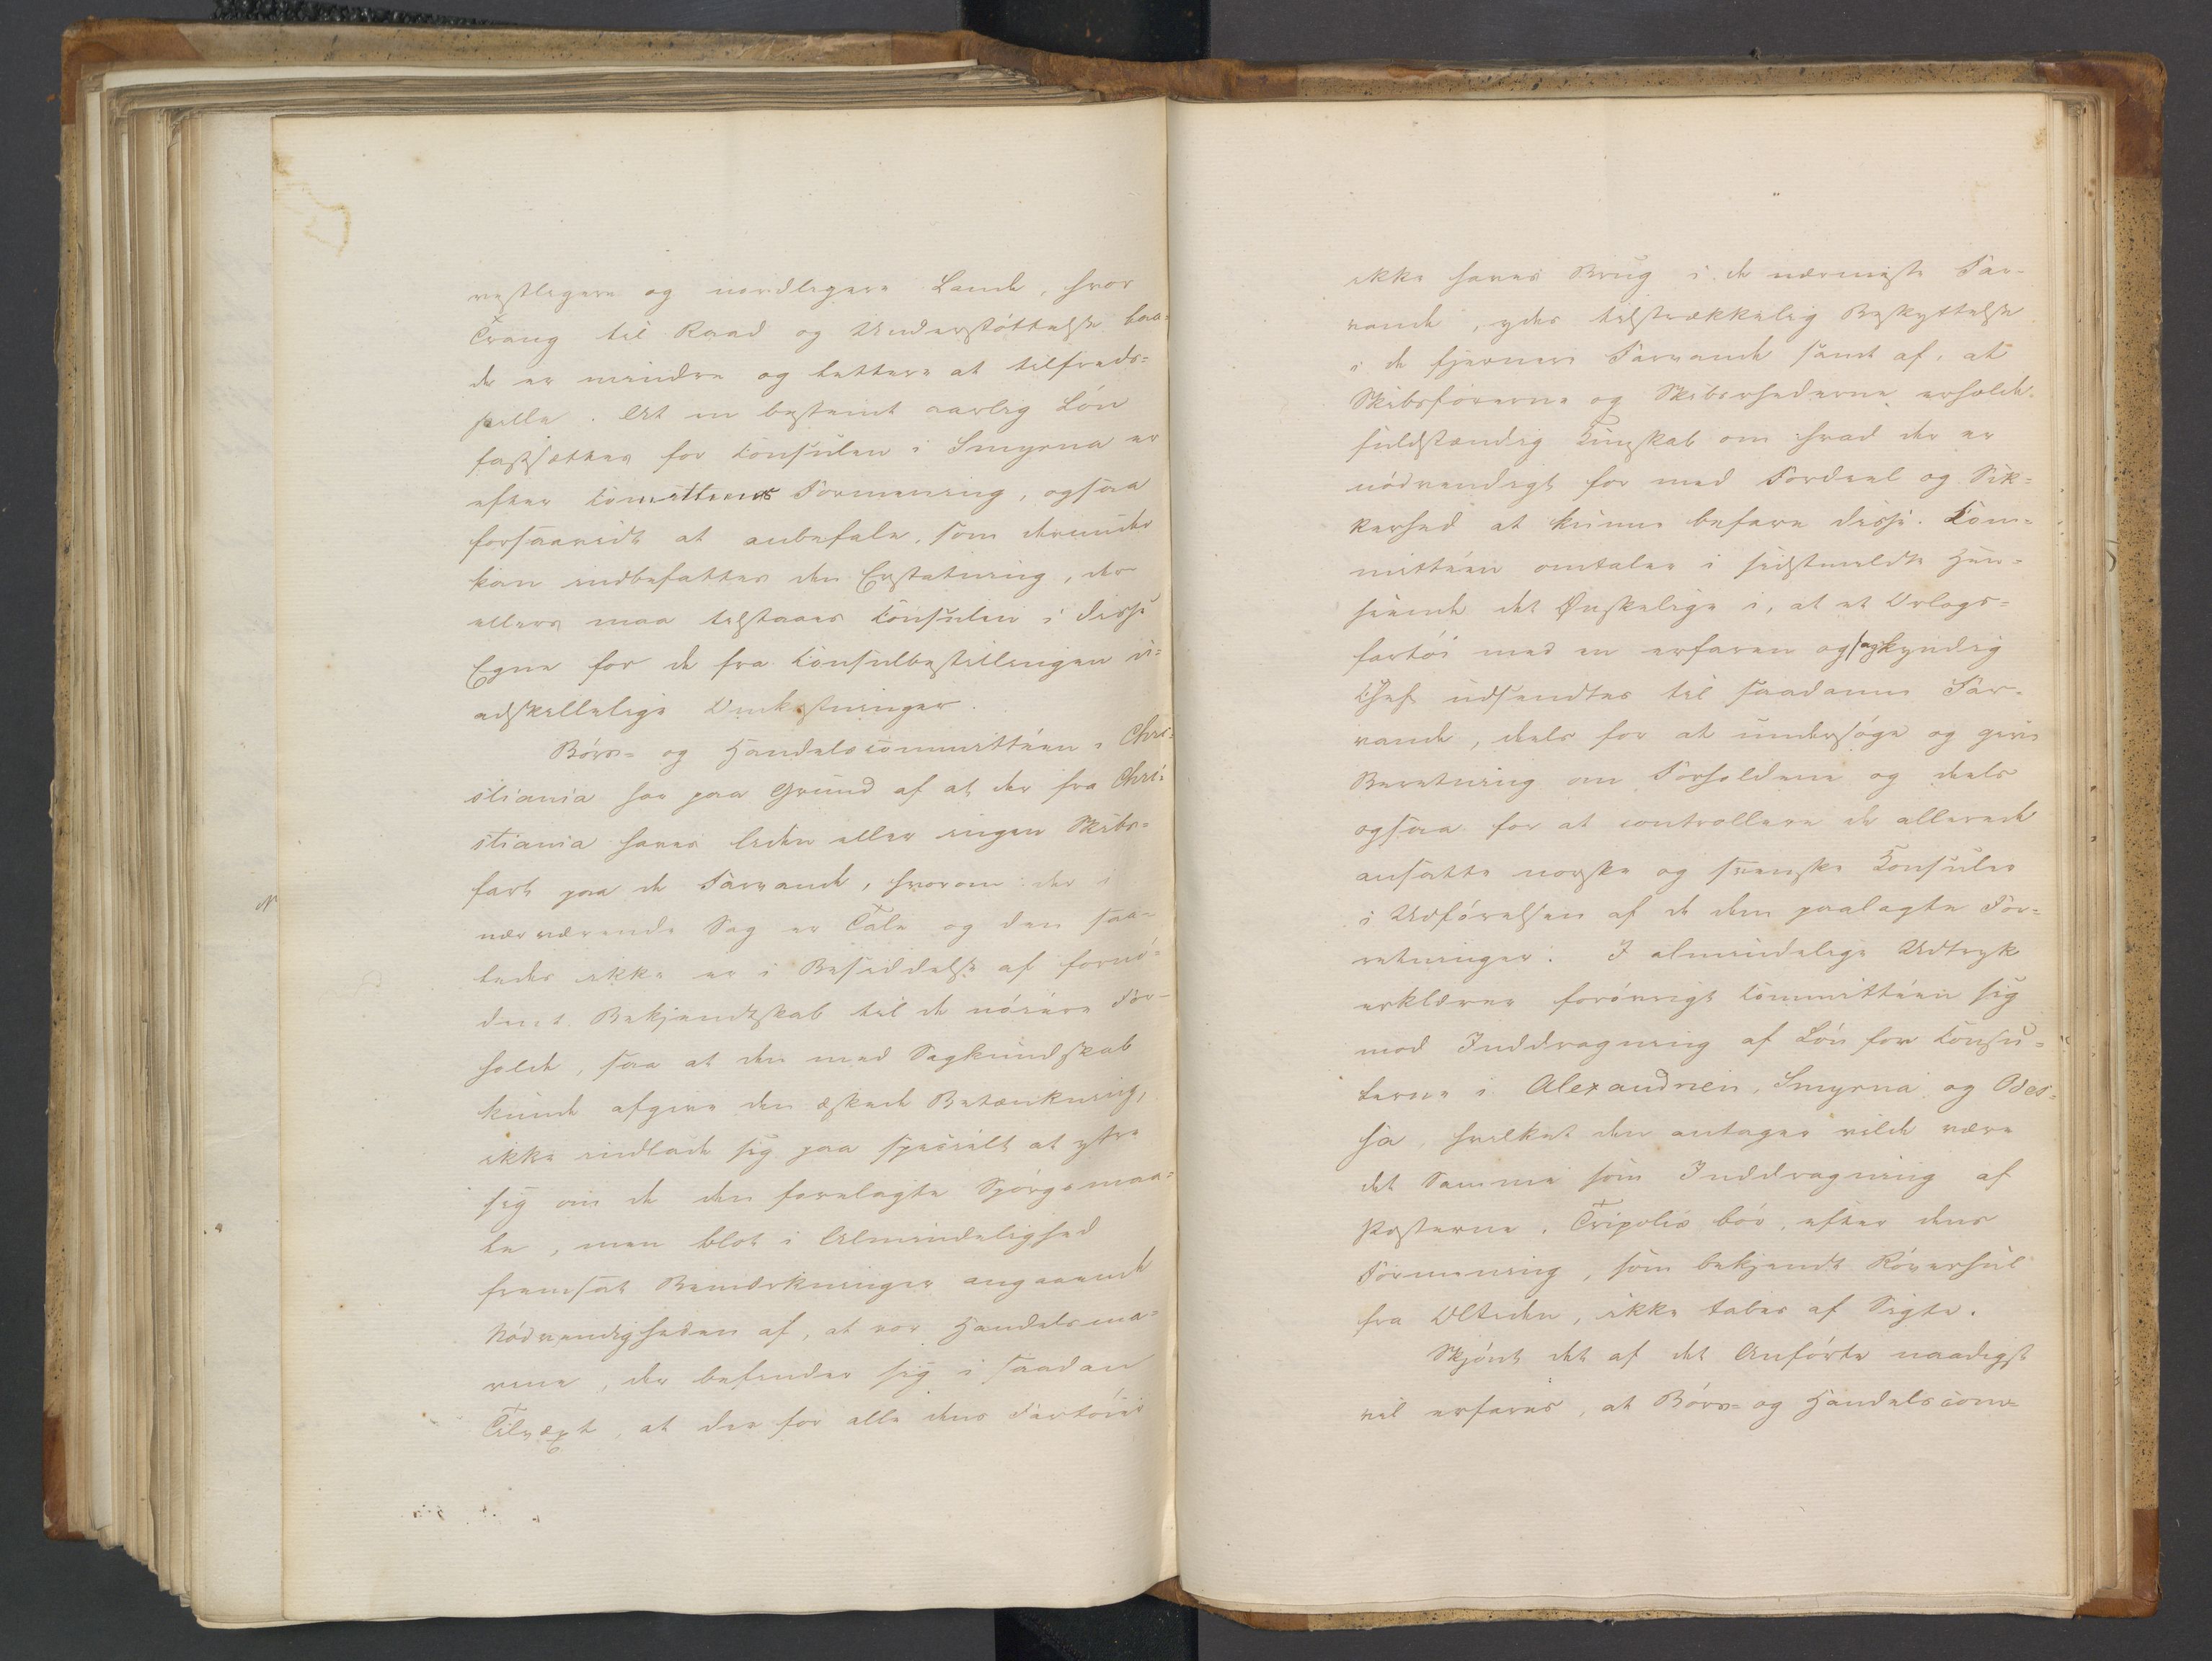 vestligere og nordligere Lande, hvor
Trang til Raad og Understøttelse baa-
de er mindre og lettere at tilfreds-
stille. At en bestemt aarlig Løn
fastsættes for Konsulen i Smyrna er
efter Comitteens Formening, ogsaa
forsaavidt at anbefale, som derunder
kan indbefattes den Erstatning, der
ellers maa tilstaaes Konsulen i disse
Egne for de fra Konsulbestillingen u-
adskillelige Omkostninger.
Børs- og Handelscommitteen i Chri-
stiania har paa Grund af at der fra Chri-
stiania haves liden eller ingen Skibs-
fart paa de Farvande, hvorom der i
nærværende Sag er Tale og den saa-
ledes ikke er i Besiddelse af fornø-
dent Bekjendtskab til de nøiere For-
holde, saa at den med Sagkundskab
kunde afgive den æskede Betænkning,
ikke indladt sig paa specielt at yttre
sig om de den forelagte Spørgsmaa-
le, men blot i Almindelighed
fremsat Bemærkninger angaaende
Nødvendigheden af, at vor Handelsma-
rine, der befinder sig i saadan
Tilvæxt, at der for alle dens Fartøier
ikke haves Brug i de nærmeste Far-
vande, ydes tilstrækkelig Beskyttelse
i de fjernere Farvande samt af, at
Skibsførerne og Skibsrhederne erholde
fuldstændig Kundskab om hvad der er
nødvendigt for med Fordeel og Sik-
kerhed at kunne befare disse. Com-
mitteen omtaler i sidstmeldte Hen-
seende det Ønskelige i, at et Orlogs-
fartøi med en erfaren og sagkyndig
Chef udsendtes til saadanne Far-
vande, deels for at undersøge og give
Beretning om Forholdene og deels
ogsaa for at controllere de allerede
ansatte norske og svenske Konsuler
i Udførelsen af de dem paalagte For-
retninger. I almindelige Udtryk
erklærer forøvrigt Committeen sig
mod Inddragning af Løn for Konsu-
lerne i Alexandrien, Smyrna og Odes-
sa, hvilket den antager vilde være
det Samme som Inddragning af
Posterne. Tripolis bør, efter dens
Formening, som bekjendt Røverhul
fra Oltiden, ikke tabes af Sigte.
Skjønt det af det Anførte naadigst
vil erfares, at Børs- og Handelscom-